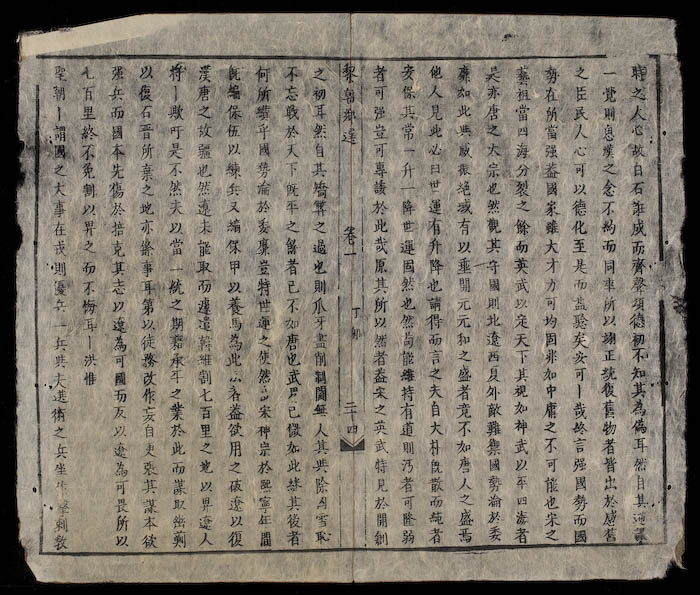 時之人心故白石誰成而齊聲頌德初不知其為偽耳然自其
一覺則思漢之念不約而同率所以翊正統復舊物者皆出於感舊
之臣民人心可以德化至是而益驗矣奚可丨哉終言强國勢而國
勢在所當强蓋國家雖大才力可均固非如中庸之不可能也宋之
藝祖當四海分裂之餘而英武以定天下其視如神武以平四海者
是亦唐之太宗也然觀其守國則北遼西夏外敵難禦國勢淪於委
靡如此與威振絕域有以垂開元元和之盛者竟不如唐人之盛焉
他人見此必曰世運有升降也請得而言之夫自大朴既散而純者
安保其常一升一降世運固然也然苟能維持有道則汚者可隆弱
者可强豈可專諉於此哉原其所以然者蓋宋之英武特見於開創
黎朝鄉選 卷一 丁卯 三十四
之初耳然自其矯弊之過也則爪牙盡削制閫無人其與除凶雪恥
不忘戰於天下既平之餘者已不如唐也武畧已儳如此緣其後者
何所繼乎國勢淪於委靡豈特世運之使然哉宋神宗於熙寧年間
既編保伍以練兵又編保甲以養馬為此公者蓋欲用之破遼以復
漢唐之故疆也然遼未能取而遽遣韓維割七百里之地以畀遼人
將丨歟可是不然夫以當一統之期藉承平之業於此而謀取幽薊
以復石晉所棄之地亦餘事耳第以徒務改作妄自更張其謀本欲
强兵而國本先傷於掊克其志以遼為可圖而反以遼為可畏所以
七百里終不免割以畀之而不悔耳丨洪惟
聖朝丨謂國之大事在戎則優兵一兵與夫進衛之兵坐作擊刺教